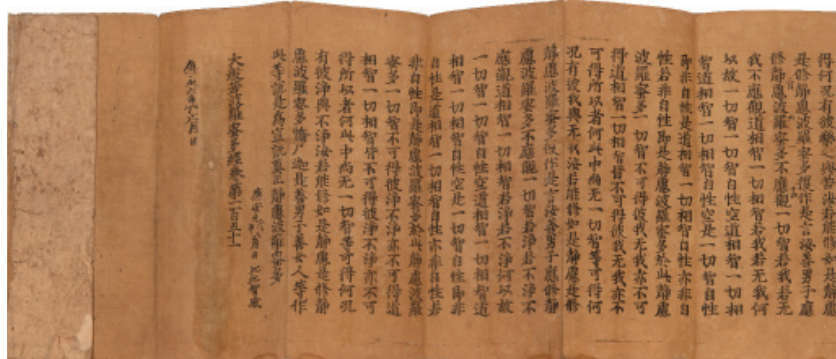 得何況有彼樂之與苦汝若能修如是靜慮
是修靜慮波羅蜜多復作是言汝善男子應
修靜慮波羅蜜多不應觀一切智若我若无
我不應觀道相智一切相智若我若无我何
以故一切智一切智自性空道相智一切相
智道相智一切相智自性空是一切智自性
即非自性是道相智一切相智自性亦非自
性若非自性即是靜慮波羅蜜多於此靜慮
波羅蜜多一切智不可得彼我无我亦不可
得道相智一切相智皆不可得彼我无我亦不
可得所以者何此中尚无一切智等可得何
況有彼我與无我汝若能修如是靜慮是修
靜慮波羅蜜多復作是言汝善男子應修靜
慮波羅蜜多不應觀一切智若淨若不淨不
應觀道相智一切相智若淨若不淨何以故
一切智一切智自性空道相智一切相智道
相智一切相智自性空是一切智自性即非
自性是道相智一切相智自性亦非自性若
非自性即是靜慮波羅蜜多於此靜慮波羅
蜜多一切智不可得彼淨不淨亦不可得道
相智一切相智皆不可得彼淨不淨亦不可
得所以者何此中尚无一切智等可得何況
有彼淨與不淨汝若能修如是靜慮是修靜
慮波羅蜜多憍尸迦是善男子善女人等作
此等說是為宣說真正靜慮波羅蜜多
大般若波羅蜜多經卷第一百五十一